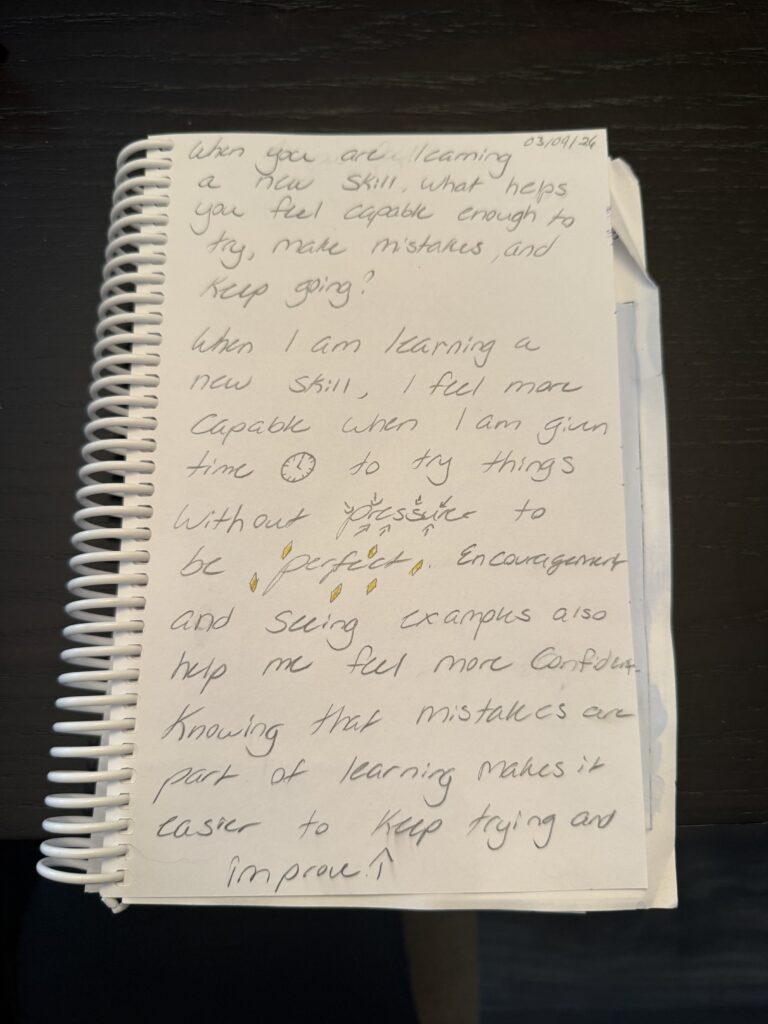 03/09/26
When you are learning
a new skill, what helps
you feel capable enough to
try, make mistakes, and
keep going?
When I am learning a
new skill, I feel more
capable when I am given
time to try things
without pressure to
be perfect. Encouragement
and seeing examples also
help me feel more confident.
Knowing that mistakes are
part of learning makes it
easier to keep trying and
improve.